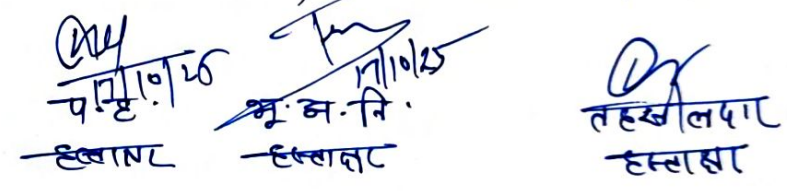 17/10/25 17/10/25
प. ह. भू. अ. नि. तहसीलदार
हस्ताक्षर हस्ताक्षर हस्ताक्षर